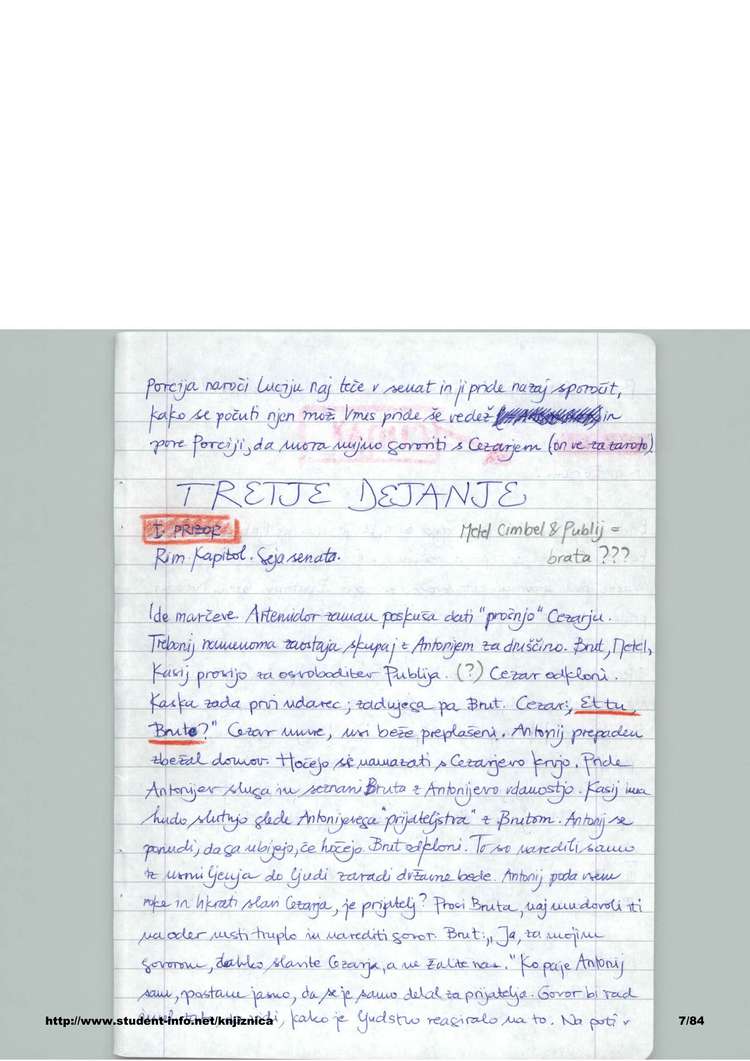 Porcija naroči Luciju naj teče v senat in ji pride nazaj sporočit,
kako se počuti njen mož. Vmes pride še vedež in
pove Porciji, da mora nujno govoriti s Cezarjem (on ve za zaroto)
TRETJE DEJANJE
I. PRIZOR
Metel Cimbel & Publij =
Rim. Kapitol. Seja senata.
brata ???
Ide marčeve. Artemidor zaman poskuša dati "prošnjo" Cezarju.
Trebonij namenoma zaostaja skupaj z Antonijem za druščino. Brut, Metel,
Kasij prosijo za osvoboditev Publija. (?) Cezar odkloni.
Kaska zada prvi udarec; zadnjega pa Brut. Cezar: „Et tu,
Brute?" Cezar umre, vsi beže preplašeni. Antonij prepaden
zbežal domov. Hočejo se namazati s Cezarjevo krvjo. Pride
Antonijev sluga in seznani Bruta z Antonijevo vdanostjo. Kasij ima
hudo slutnjo glede Antonijevega "prijateljstva" z Brutom. Antonij se
ponudi, da ga ubijejo, če hočejo. Brut odkloni. To so naredili samo
iz usmiljenja do ljudi zaradi državne bede. Antonij poda vsem
roke in hkrati slavi Cezarja, je prijatelj? Prosi Bruta, naj mu dovoli iti
na oder nesti truplo in narediti govor. Brut: „Ja, za mojim
govorom, lahko slavite Cezarja, a ne žalite nas." Ko pa je Antonij
sam, postane jasno, da se je samo delal za prijatelja. Govor bi rad
kako je ljudstvo reagiralo na to. Na poti v
http://www.student-info.net/knjiznica
7/84